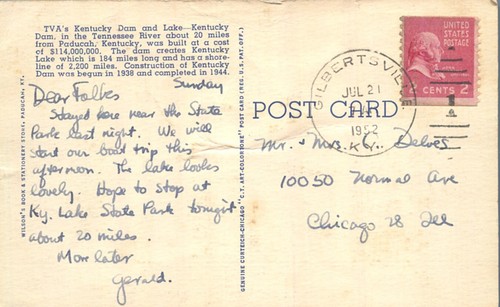 TVA's Kentucky Dam and Lake—Kentucky
Dam, in the Tennessee River about 20 miles
from Paducah, Kentucky, was built at a cost
of $114,000,000. The dam creates Kentucky
Lake which is 184 miles long and has a shore-
line of 2,200 miles. Construction of Kentucky
Dam was begun in 1938 and completed in 1944.
Sunday
Dear Folks
Stayed here near the State
Park last night. We will
start our boat trip this
afternoon. The lake looks
lovely. Hope to stop at
Ky. Lake State Park tonight
about 20 miles.
More later
Gerald.
WILSON'S BOOK & STATIONERY STORE, PADUCAH, KY.
GENUINE CURTEICH-CHICAGO "C.T. ART-COLORTONE" POST CARD (REG. U.S. PAT. OFF.)
POST CARD
GILBERTSVILLE
JUL 21
1952
KY.
UNITED
STATES
POSTAGE
CENTS 2
Mr. & Mrs. C. Delves
10050 Normal Ave
Chicago 28 Ill